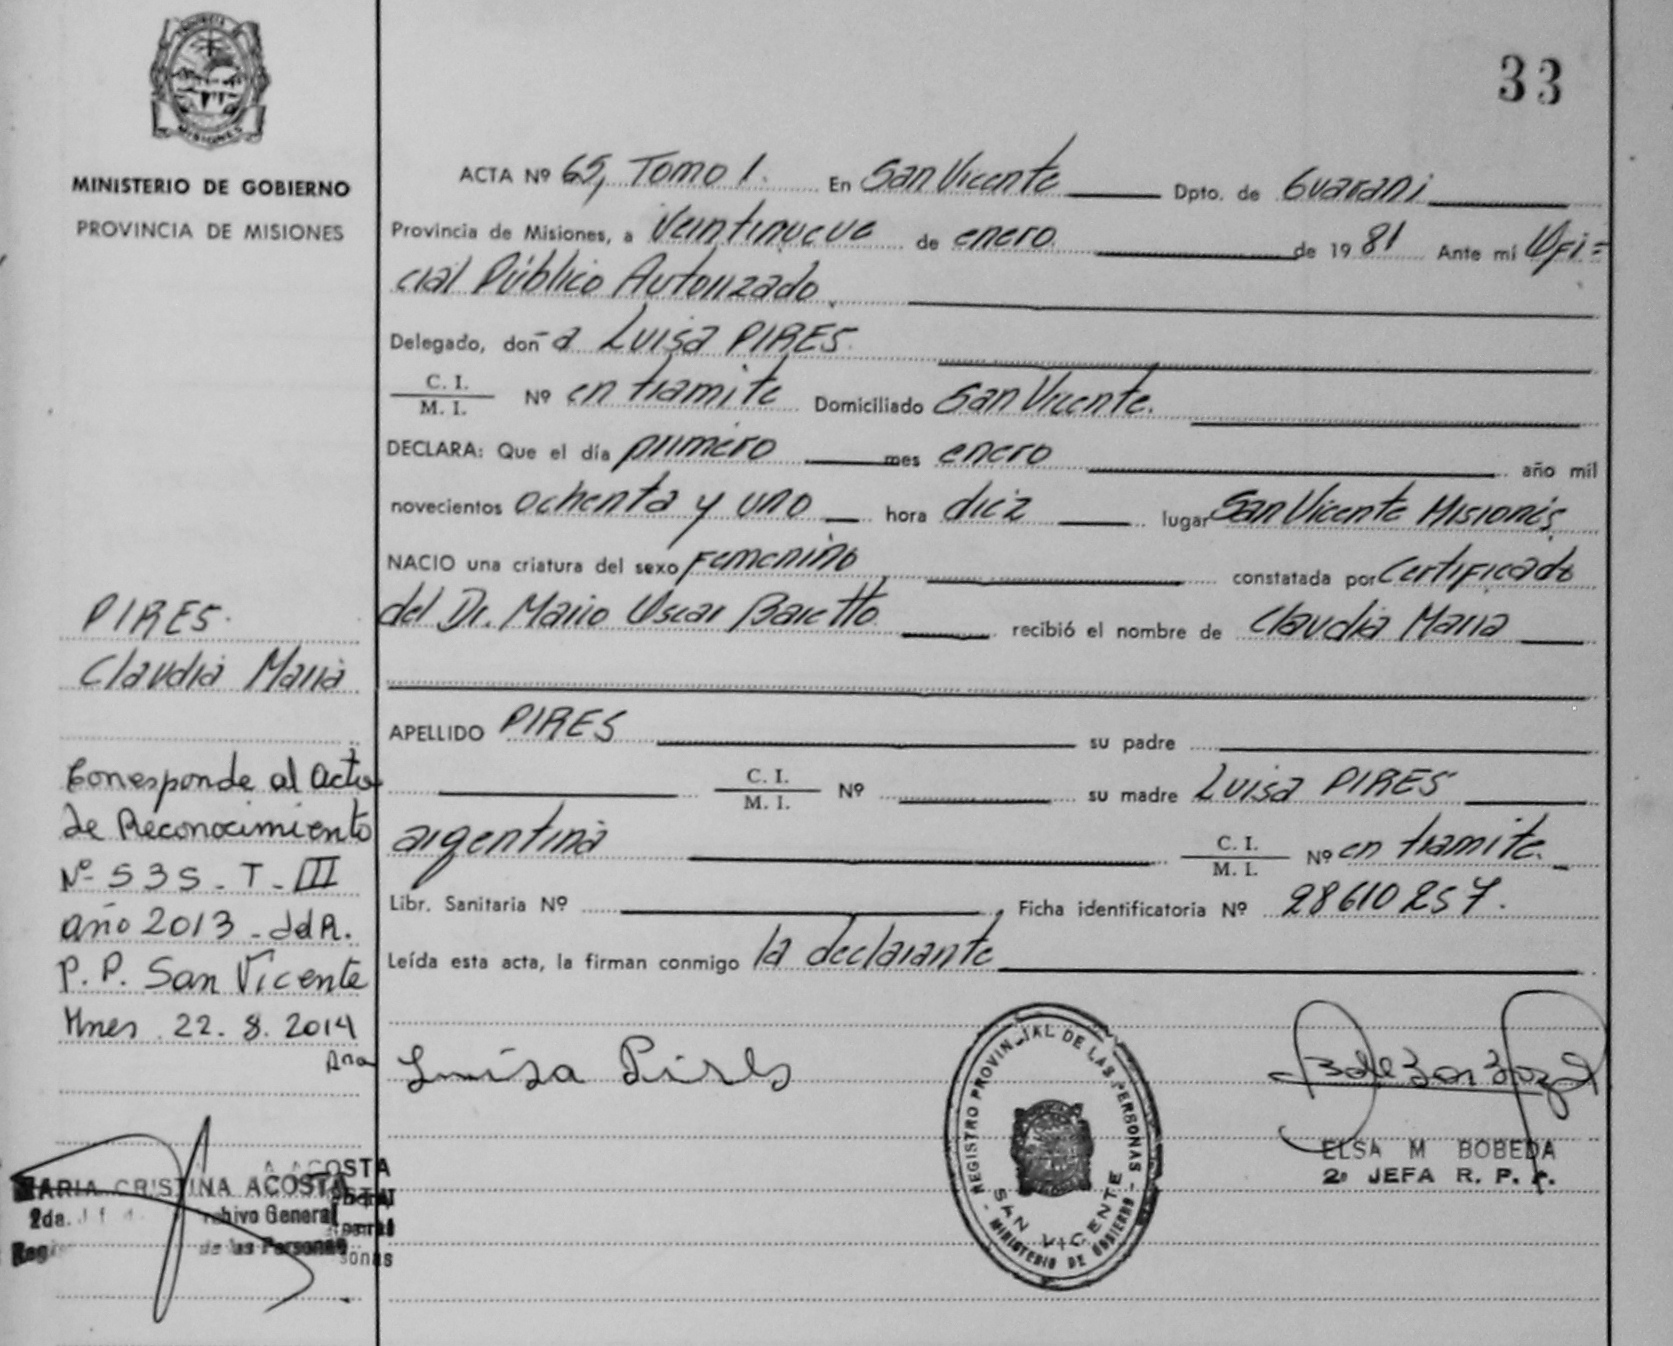 33
MISIONES
MINISTERIO DE GOBIERNO
PROVINCIA DE MISIONES
ACTA Nº 65, Tomo 1. En San Vicente Dpto. de Guarani
Provincia de Misiones, a Veintinueve de enero de 1981 Ante mi Ofi=
cial Público Autorizado
Delegado, doña Luisa PIRES
C. I.
M. I.
Nº en tramite Domiciliado San Vicente.
DECLARA: Que el día primero mes enero año mil
novecientos ochenta y uno hora diez lugar San Vicente Misiones
NACIO una criatura del sexo Femenino constatada por Certificado
del Dr. Mario Oscar Baretto recibió el nombre de Claudia Maria
APELLIDO PIRES su padre
C. I.
M. I.
Nº su madre Luisa PIRES
argentina
C. I.
M. I.
Nº en tramite.
Libr. Sanitaria Nº Ficha identificatoria Nº 28610257.
Leída esta acta, la firman conmigo la declarante
Luisa Pires
REGISTRO PROVINCIAL DE LAS PERSONAS
SAN VICENTE
MINISTERIO DE GOBIERNO
ELSA M BOBEDA
2º JEFA R. P. P.
PIRES
Claudia Maria
Corresponde al Acta
de Reconocimiento
Nº 535 - T - III
año 2013 - ddR.
P. P. San Vicente
Mnes. 22. 8. 2014
Ana
MARIA CRISTINA ACOSTA
2da. General
de las Personas